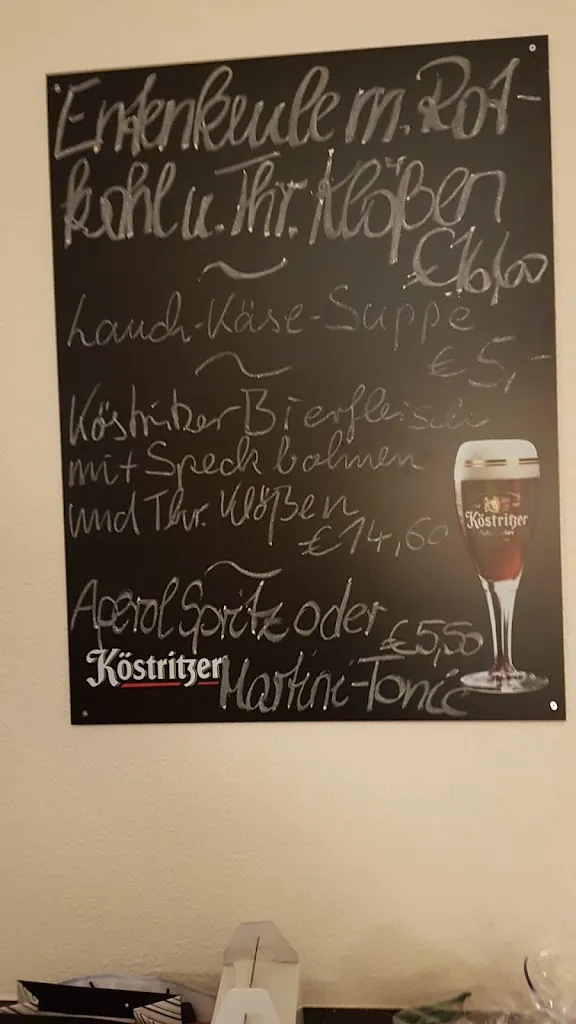 Entenkeule m. Rot-
kohl u. Thr. Klößen
€16,00
Lauch-Käse-Suppe
€5,-
Köstritzer Bierfleisch
mit Speckbohnen
und Thr. Klößen
€14,60
Köstritzer
Aperol Spritz oder
€5,50
Köstritzer
Martini-Tonic